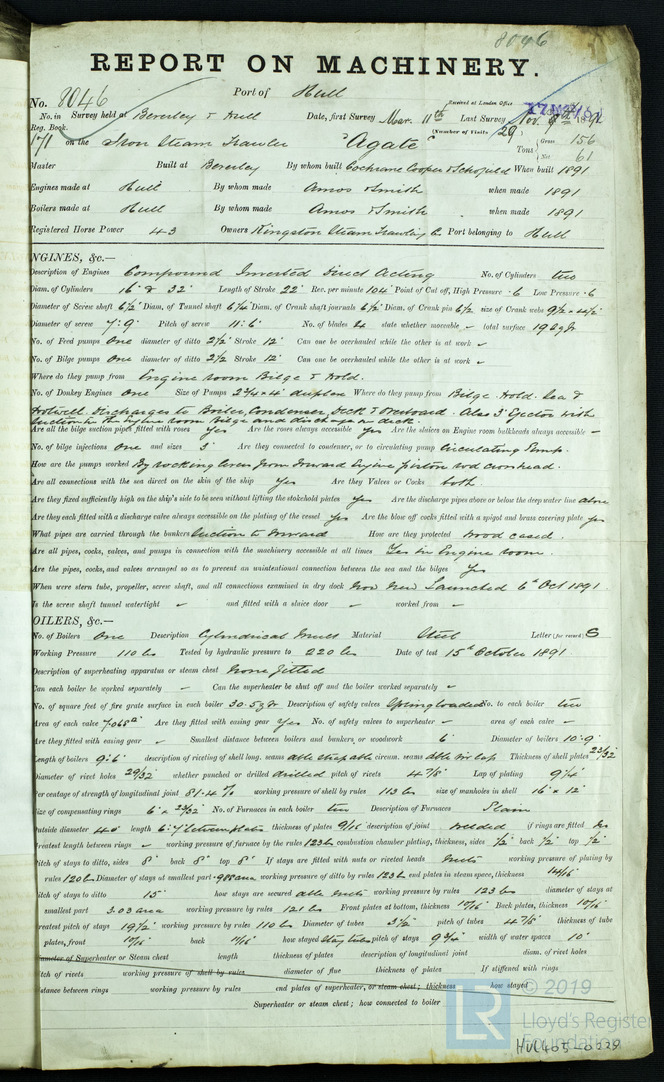 8046
REPORT ON MACHINERY.
Port of Hull
Received at London Office
No. 8046
No. in Survey held at Beverley & Hull Date, first Survey Mar. 11th Last Survey Nov. 9th 1891
Reg. Book. (Number of Visits 29)
171 on the Iron Steam Trawler "Agate" Tons Gross 156
Net 61
Master Built at Beverley By whom built Cochrane Cooper & Schofield When built 1891
Engines made at Hull By whom made Amos & Smith when made 1891
Boilers made at Hull By whom made Amos & Smith when made 1891
Registered Horse Power 43 Owners Kingston Steam Trawling Co. Port belonging to Hull
NGINES, &c.—
Description of Engines Compound Inverted Direct Acting No. of Cylinders two
Diam. of Cylinders 16" & 32" Length of Stroke 22" Rev. per minute 104 Point of Cut off, High Pressure .6 Low Pressure .6
Diameter of Screw shaft 6½" Diam. of Tunnel shaft 6¼ Diam. of Crank shaft journals 6½" Diam. of Crank pin 6½ size of Crank webs 9½ × 4½"
Diameter of screw 7'.9" Pitch of screw 11'.6" No. of blades 4 state whether moveable – total surface 19 sq ft
No. of Feed pumps One diameter of ditto 2½" Stroke 12" Can one be overhauled while the other is at work –
No. of Bilge pumps One diameter of ditto 2½" Stroke 12" Can one be overhauled while the other is at work –
Where do they pump from Engine room Bilge & Hold.
No. of Donkey Engines One Size of Pumps 2¾ × 4" duplex Where do they pump from Bilge. Hold. Sea &
Hotwell. Discharges to Boiler, Condenser, Deck & Overboard. Also 3" Ejector with
suction to the Engine Room Bilge and discharge on deck.
Are all the bilge suction pipes fitted with roses Yes Are the roses always accessible Yes Are the sluices on Engine room bulkheads always accessible –
No. of bilge injections One and sizes 3" Are they connected to condenser, or to circulating pump Circulating Pump.
How are the pumps worked By rocking levers from forward Engine piston rod crosshead.
Are all connections with the sea direct on the skin of the ship Yes Are they Valves or Cocks both
Are they fixed sufficiently high on the ship's side to be seen without lifting the stokehold plates Yes Are the discharge pipes above or below the deep water line above
Are they each fitted with a discharge valve always accessible on the plating of the vessel Yes Are the blow off cocks fitted with a spigot and brass covering plate Yes
What pipes are carried through the bunkers Suction to forward How are they protected Wood cased.
Are all pipes, cocks, valves, and pumps in connection with the machinery accessible at all times Yes in Engine room.
Are the pipes, cocks, and valves arranged so as to prevent an unintentional connection between the sea and the bilges Yes
When were stern tube, propeller, screw shaft, and all connections examined in dry dock Now New Launched 6th Oct 1891.
Is the screw shaft tunnel watertight – and fitted with a sluice door – worked from –
OILERS, &c.—
No. of Boilers One Description Cylindrical Mult Material Steel Letter (for record) S
Working Pressure 110 lbs Tested by hydraulic pressure to 220 lbs Date of test 15th October 1891
Description of superheating apparatus or steam chest None fitted
Can each boiler be worked separately – Can the superheater be shut off and the boiler worked separately –
No. of square feet of fire grate surface in each boiler 30.5 sq ft Description of safety valves Spring loaded No. to each boiler two
Area of each valve 7.068 □" Are they fitted with easing gear Yes No. of safety valves to superheater – area of each valve –
Are they fitted with easing gear – Smallest distance between boilers and bunkers or woodwork 6" Diameter of boilers 10'.9"
Length of boilers 9'.6" description of riveting of shell long. seams dble strap dble circum. seams dble riv lap Thickness of shell plates 23/32"
Diameter of rivet holes 29/32 whether punched or drilled drilled pitch of rivets 4⅞" Lap of plating 9¼"
Per centage of strength of longitudinal joint 81.4 % working pressure of shell by rules 113 lbs size of manholes in shell 16" × 12"
Size of compensating rings 6" × 23/32" No. of Furnaces in each boiler two Description of Furnaces Plain
Outside diameter 40" length 6'.7" between plates thickness of plates 9/16 description of joint welded if rings are fitted No
Greatest length between rings – working pressure of furnace by the rules 123 lbs combustion chamber plating, thickness, sides ½" back ½" top ½"
Pitch of stays to ditto, sides 8" back 8" top 8" If stays are fitted with nuts or riveted heads Nuts working pressure of plating by
rules 120 lbs Diameter of stays at smallest part .988 area working pressure of ditto by rules 123 lbs end plates in steam space, thickness 14/16"
Pitch of stays to ditto 15" how stays are secured dble nuts working pressure by rules 123 lbs diameter of stays at
smallest part 3.03 area working pressure by rules 121 lbs Front plates at bottom, thickness 10/16" Back plates, thickness 10/16"
Greatest pitch of stays 19½" working pressure by rules 110 lbs Diameter of tubes 3½" pitch of tubes 4⅞" thickness of tube
plates, front 10/16" back 11/16" how stayed Stay tubes pitch of stays 9¾" width of water spaces 10"
Diameter of Superheater or Steam chest length thickness of plates description of longitudinal joint diam. of rivet holes
Pitch of rivets working pressure of shell by rules diameter of flue thickness of plates If stiffened with rings
Distance between rings working pressure by rules end plates of superheater, or steam chest; thickness how stayed
Superheater or steam chest; how connected to boiler
LR
© 2019
Lloyd's Register
Foundation
HUL405-0229